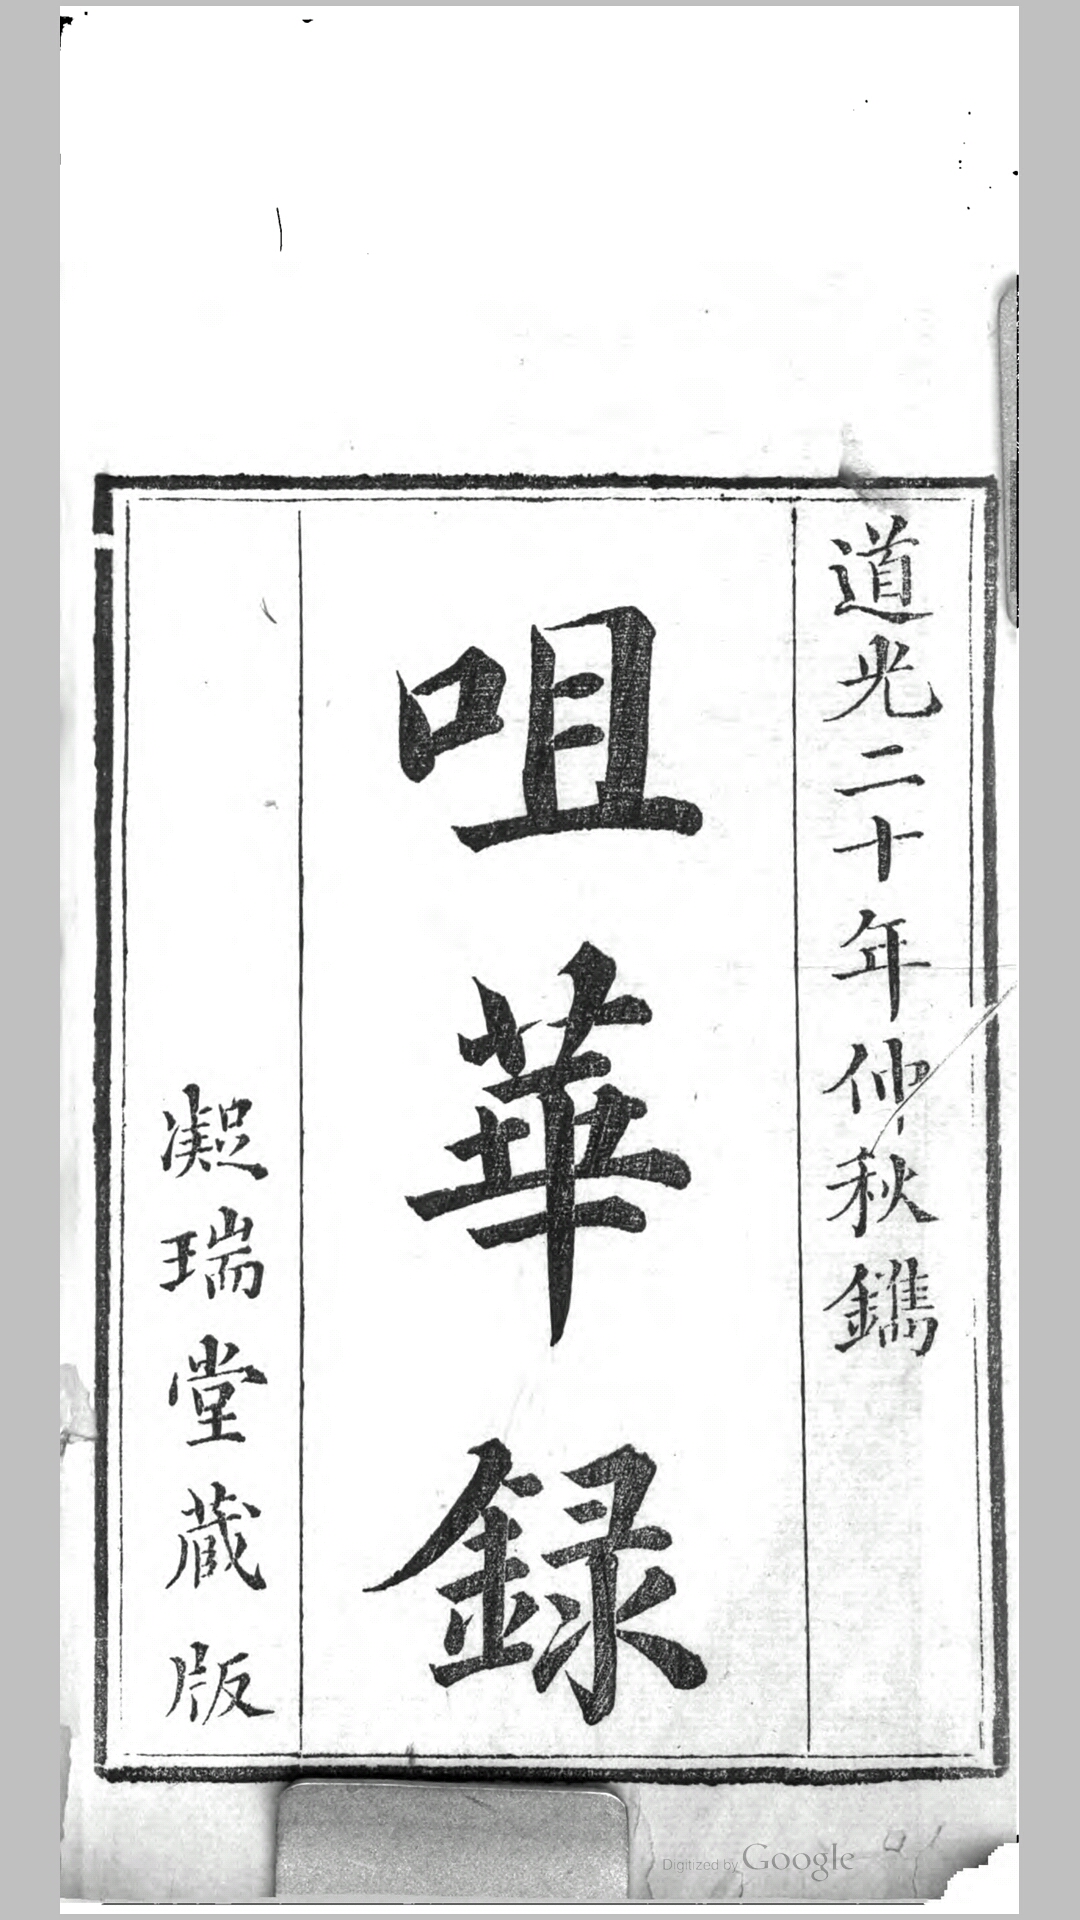 道光二十年仲秋鐫
咀華錄
凝瑞堂藏版
Digitized by Google